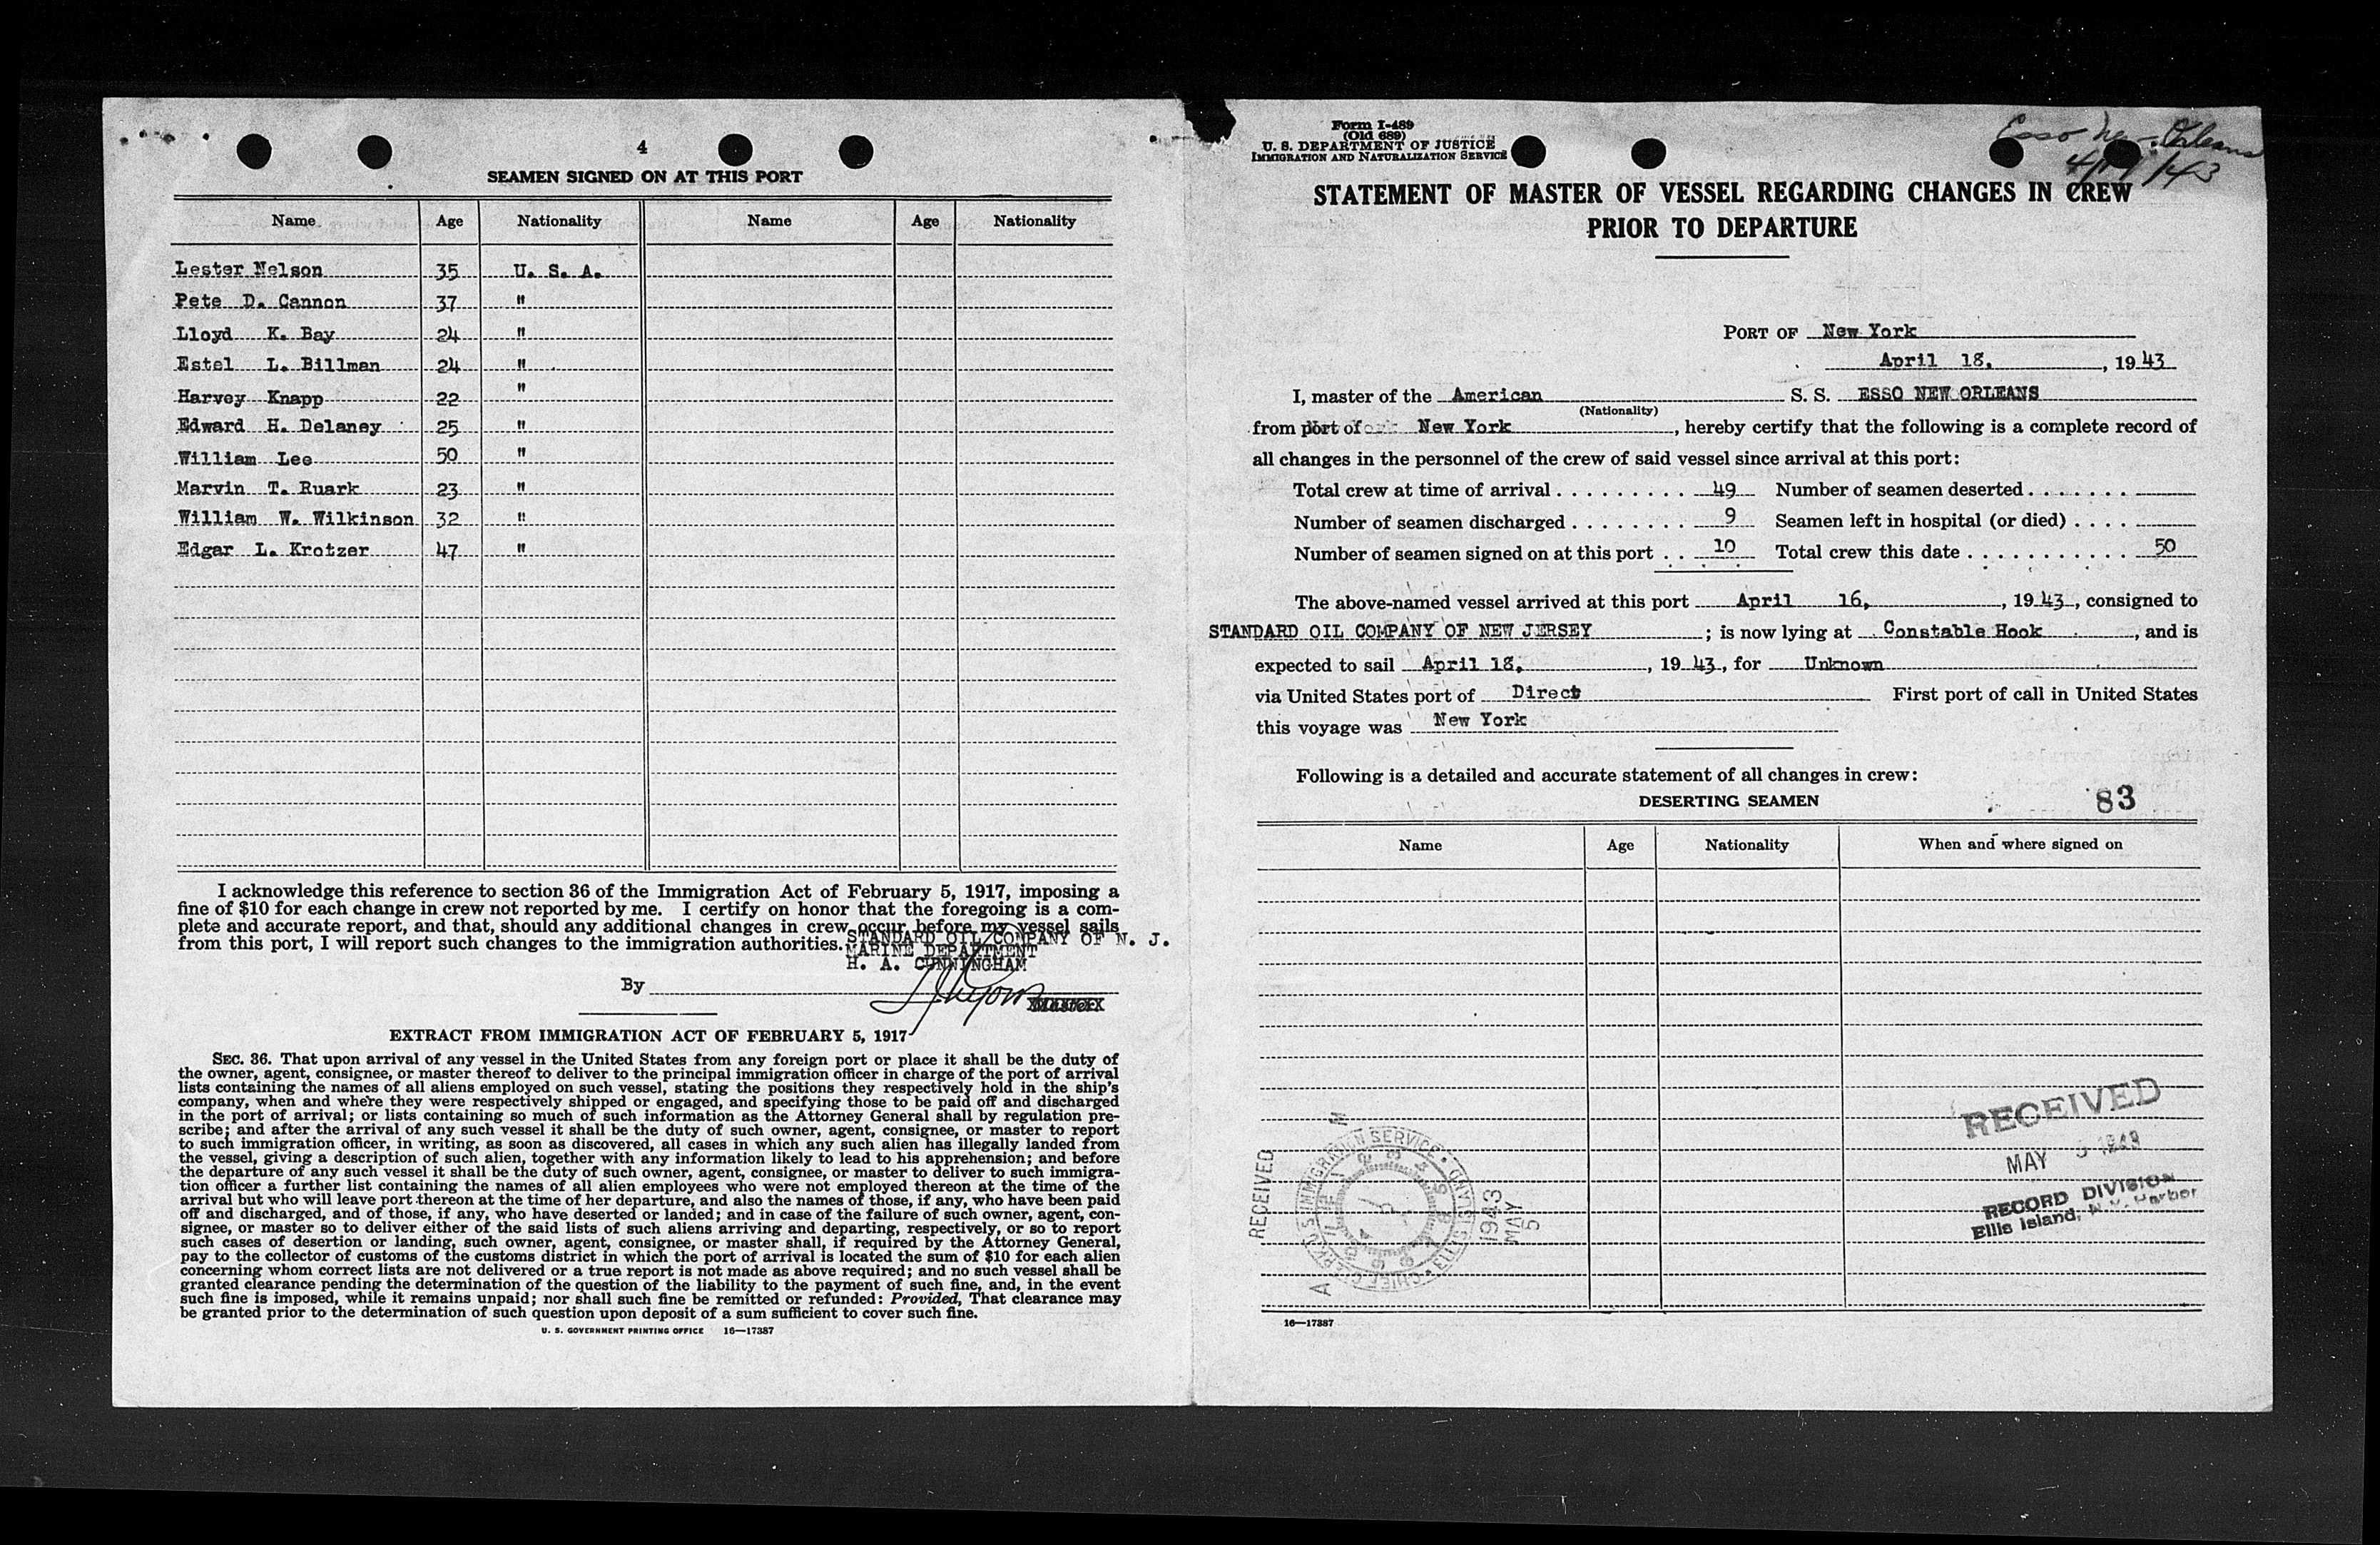 4
SEAMEN SIGNED ON AT THIS PORT
Name Age Nationality Name Age Nationality
Lester Nelson 35 U. S. A.
Pete D. Cannon 37 "
Lloyd K. Bay 24 "
Estel L. Billman 24 "
Harvey Knapp 22 "
Edward H. Delaney 25 "
William Lee 50 "
Marvin T. Ruark 23 "
William W. Wilkinson 32 "
Edgar L. Krotzer 47 "
I acknowledge this reference to section 36 of the Immigration Act of February 5, 1917, imposing a
fine of $10 for each change in crew not reported by me. I certify on honor that the foregoing is a com-
plete and accurate report, and that, should any additional changes in crew occur before my vessel sails
from this port, I will report such changes to the immigration authorities.
STANDARD OIL COMPANY OF N. J.
MARINE DEPARTMENT
H. A. CUNNINGHAM
By
EXTRACT FROM IMMIGRATION ACT OF FEBRUARY 5, 1917
SEC. 36. That upon arrival of any vessel in the United States from any foreign port or place it shall be the duty of
the owner, agent, consignee, or master thereof to deliver to the principal immigration officer in charge of the port of arrival
lists containing the names of all aliens employed on such vessel, stating the positions they respectively hold in the ship's
company, when and where they were respectively shipped or engaged, and specifying those to be paid off and discharged
in the port of arrival; or lists containing so much of such information as the Attorney General shall by regulation pre-
scribe; and after the arrival of any such vessel it shall be the duty of such owner, agent, consignee, or master to report
to such immigration officer, in writing, as soon as discovered, all cases in which any such alien has illegally landed from
the vessel, giving a description of such alien, together with any information likely to lead to his apprehension; and before
the departure of any such vessel it shall be the duty of such owner, agent, consignee, or master to deliver to such immigra-
tion officer a further list containing the names of all alien employees who were not employed thereon at the time of the
arrival but who will leave port thereon at the time of her departure, and also the names of those, if any, who have been paid
off and discharged, and of those, if any, who have deserted or landed; and in case of the failure of such owner, agent, con-
signee, or master so to deliver either of the said lists of such aliens arriving and departing, respectively, or so to report
such cases of desertion or landing, such owner, agent, consignee, or master shall, if required by the Attorney General,
pay to the collector of customs of the customs district in which the port of arrival is located the sum of $10 for each alien
concerning whom correct lists are not delivered or a true report is not made as above required; and no such vessel shall be
granted clearance pending the determination of the question of the liability to the payment of such fine, and, in the event
such fine is imposed, while it remains unpaid; nor shall such fine be remitted or refunded: Provided, That clearance may
be granted prior to the determination of such question upon deposit of a sum sufficient to cover such fine.
U. S. GOVERNMENT PRINTING OFFICE 16—17387
Form I-489
(Old 689)
U. S. DEPARTMENT OF JUSTICE
IMMIGRATION AND NATURALIZATION SERVICE
Esso New Orleans
4/ /43
STATEMENT OF MASTER OF VESSEL REGARDING CHANGES IN CREW
PRIOR TO DEPARTURE
PORT OF New York
April 18, , 19 43
I, master of the American S. S. ESSO NEW ORLEANS
(Nationality)
from port of New York , hereby certify that the following is a complete record of
all changes in the personnel of the crew of said vessel since arrival at this port:
Total crew at time of arrival . . . . . . . . . 49 Number of seamen deserted . . . . . . .
Number of seamen discharged . . . . . . . . 9 Seamen left in hospital (or died) . . . .
Number of seamen signed on at this port . . 10 Total crew this date . . . . . . . . . . . . 50
The above-named vessel arrived at this port April 16, , 19 43 , consigned to
STANDARD OIL COMPANY OF NEW JERSEY ; is now lying at Constable Hook , and is
expected to sail April 18, , 19 43 , for Unknown
via United States port of Direct First port of call in United States
this voyage was New York
Following is a detailed and accurate statement of all changes in crew:
DESERTING SEAMEN
83
Name Age Nationality When and where signed on
RECEIVED
MAY 5 1943
RECORD DIVISION
Ellis Island, N.Y. Harbor
RECEIVED
A M
1943
MAY
5
16—17387